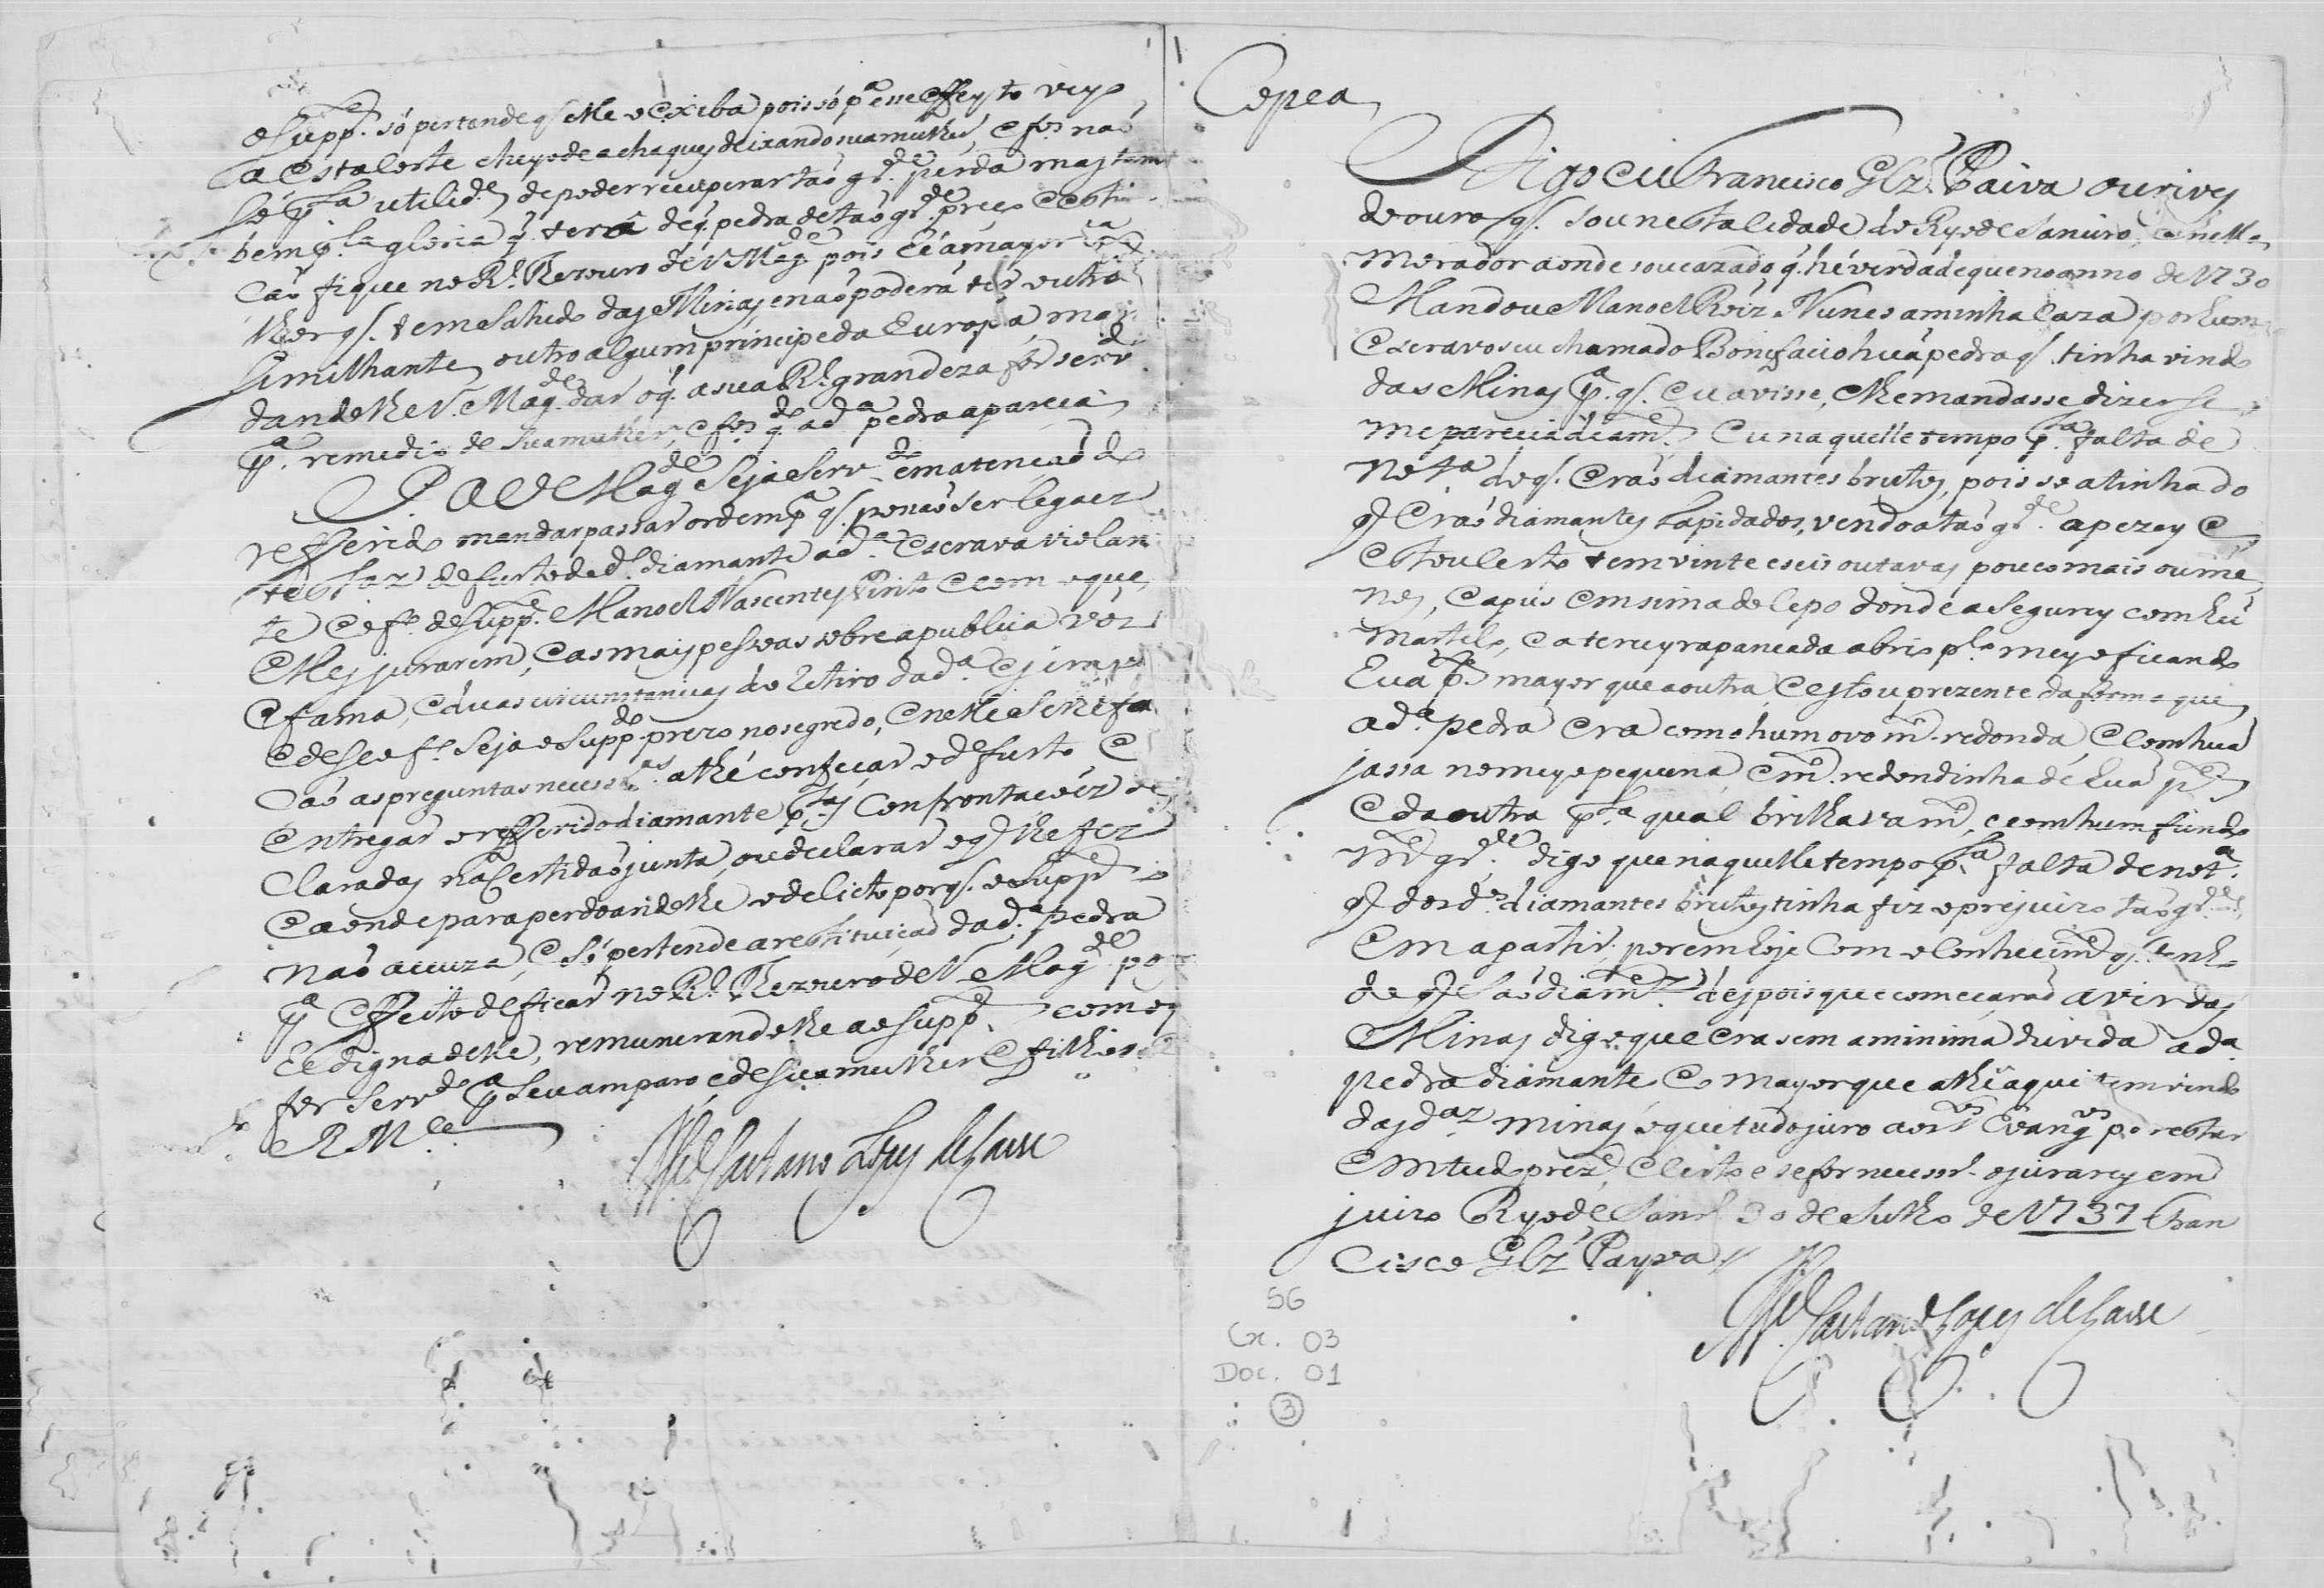 o Supp.e só pertende q̃ elle o exiba pois só p.a esse effeyto veyo
a esta Corte cheyo de achaques deixando sua mulher, e f.os não
só p.la utilid.e de poder recuperar tão gr.de perda mas tam
bem p.la gloria q̃ terá de q̃ pedra de tão gr.de preço e esti
ção fique no R.l Thezouro de V. Mag.de pois hé a mayor
lhor q̃ tem sahido das Minas, e não poderá ter outra
similhante outro algum principe da Europa, ma
dandolhe V. Mag.de dar o q̃ a sua R.l grandeza for serv.do
p.a remedio de sua mulher, e f.os q.do a d.a pedra apareça
P. a V. Mag.de Seja Serv.do em atenção do
refferido mandar passar ordem p.a q̃ p
de furto do d.o diamante a d.a escrava violan
te e o f.o do Supp.e Manoel Nascentes Pinto e com o que
elles jurarem, e as mais pessoas sobre a publica vóz
e fama, e duas circunstancias do retiro da d.a
e do seo f.o seja o Supp.do prezo no segredo, e nelle se lhe fa
ção as preguntas necess.as athé confeçar o d.o furto e
entregar o refferido diamante p.las confrontaçoiz de
claradas na Certidão junta, ou declarar o q̃ lhe fez
e aonde para perdoandolhe o delicto porq̃ o Supp.e o
não acuza, e só pertende a restituição da d.a pedra
p.a effeito de ficar no R.l Thezouro de V. Mag.de por
hé digna delle, remunerandolhe ao Supp.e como
for Serv.do p.a seu amparo, e de sua mulher e filhos
E R M.ce
M.el Caetano Lopes de Lavre
Copea
Digo eu Francisco Glz' Paiva ourives
de ouro q̃ sou nesta Cidade do Ryo de Janeiro, e nella
morador aonde sou cazado q̃ hé verdade que no anno de 1730
Mandou Manoel Roiz' Nunes a minha Caza por hum
escravo seu chamado Bonifacio huã pedra q̃ tinha vindo
das Minas p.a q̃ eu a visse, e lhe mandasse dizer se
me parecia diam.e Eu naquelle tempo p.la falta de
not.a do q̃ erão diamantes brutos, pois só a tinha do
q̃ erão diamantes lapidados, vendo a tão gr.de a pezey e
estou certo tem vinte e seis outavas pouco mais ou me
nos, e a pus em sima de cepo donde a segurey com hũ
martelo, e a terceyra pancada abrio p.lo meyo ficando
huã p.te mayor que a outra, e estou prezente da forma que
a d.a pedra era como hum ovo m.to redonda e com huã
jassa no meyo pequena, e m.to redondinha de huã p.te
e da outra p.la qual brilhava m.to, e com hum fundo
m.to gr.de digo que naquelle tempo p.la falta de not.a
q̃ dos d.os diamantes brutos tinha fiz o prejuizo tão gr.de
em a partir, porem hoje com o conhecim.to q̃ tenho
do q̃ são diam.tes despois que começarão a vir das
Minas digo que era sem a minima duvida a d.a
pedra diamante e o mayor que athé aqui tem vindo
das d.as minas, o que tudo juro aos S.tos Evang.os por estar
em tudo prez.te e certo e se for necess.o o jurarey em
juizo Ryo de Jan.ro 30 de Julho de 1737 Fran
cisco Glz' Payva //
M.el Caetano Lopes de Lavre
56
Cx. 03
Doc. 01
3